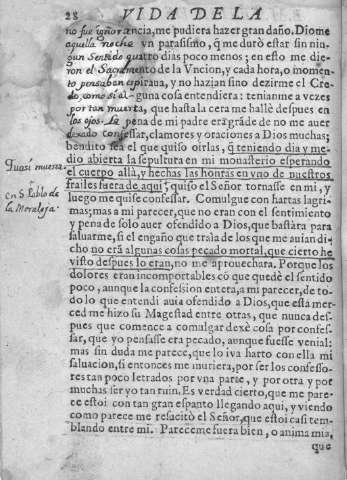 28 VIDA DE LA
no fue ignorancia, me pudiera hazer gran daño. Diome
aquella noche vn parasismo, q̃ me durò estar sin nin-
gun Sentido quatro dias poco menos; en esto me die-
ron el Sacramento de la Vncion, y cada hora, o momẽ-
to pensaban espiraua, y no hazian sino dezirme el Cre-
do, como si alguna cosa entendiera: tenianme a vezes
por tan muerta, que hasta la cera me hallè despues en
los ojos. La pena de mi padre era grãde de no me auer
dexado confessar, clamores y oraciones a Dios muchas;
bendito sea el que quiso oirlas, q̃ teniendo dia y me-
dio abierta la sepultura en mi monasterio esperando
el cuerpo allà, y hechas las honras en vno de nuestros
frailes fuera de aqui, quiso el Señor tornasse en mi, y
luego me quise confessar. Comulgue con hartas lagri-
mas; mas a mi parecer, que no eran con el sentimiento
y pena de solo auer ofendido a Dios, que bastàra para
saluarme, si el engaño que traìa de los que me auian di-
cho no erã algunas cosas pecado mortal, que cierto he
visto despues lo eran, no me aprouechara. Porque los
dolores eran incomportables cõ que quedè el sentido
poco, aunque la confession entera, a mi parecer, de to-
do lo que entendi auia ofendido a Dios, que esta mer-
ced me hizo su Magestad entre otras, que nunca des-
pues que comence a comulgar dexè cosa por confes-
sar, que yo pensasse era pecado, aunque fuesse venial:
mas sin duda me parece, que lo iva harto con ella mi
saluacion, si entonces me muriera, por ser los confesso-
res tan poco letrados por vna parte, y por otra y por
muchas ser yo tan ruin. Es verdad cierto, que me pare-
ce estoi con tan gran espanto llegando aqui, y viendo
como parece me resucitò el Señor, que estoi casi tem-
blando entre mi. Pareceme fuera bien, o anima mia,
que
Quasi muerta.
en S. Pablo de
la Moraleja.